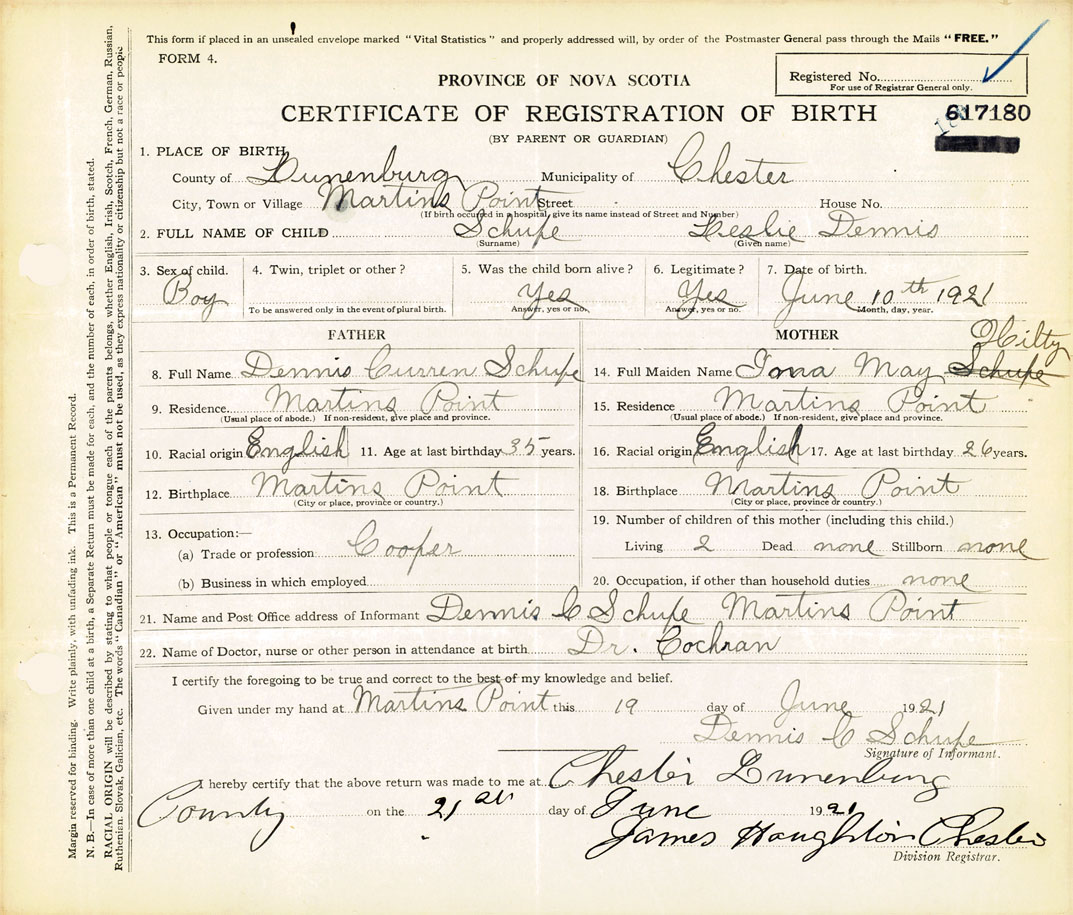 This form if placed in an unsealed envelope marked "Vital Statistics" and properly addressed will, by order of the Postmaster General pass through the Mails "FREE."
FORM 4.
Registered No.
For use of Registrar General only.
PROVINCE OF NOVA SCOTIA
CERTIFICATE OF REGISTRATION OF BIRTH
617180
(BY PARENT OR GUARDIAN)
1. PLACE OF BIRTH
County of Lunenburg Municipality of Chester
City, Town or Village Martins Point Street House No.
(If birth occured in a hospital, give its name instead of Street and Number)
2. FULL NAME OF CHILD Schupe Leslie Dennis
(Surname) (Given name)
3. Sex of child. 4. Twin, triplet or other? 5. Was the child born alive? 6. Legitimate? 7. Date of birth.
Boy Yes Yes June 10th 1921
To be answered only in the event of plural birth. Answer, yes or no. Answer, yes or no. Month, day, year.
FATHER MOTHER
Hilty
8. Full Name Dennis Curren Schupe 14. Full Maiden Name Iona May Schupe
9. Residence Martins Point 15. Residence Martins Point
(Usual place of abode.) If non-resident, give place and province. (Usual place of abode.) If non-resident, give place and province.
10. Racial origin English 11. Age at last birthday 35 years. 16. Racial origin English 17. Age at last birthday 26 years.
12. Birthplace Martins Point 18. Birthplace Martins Point
(City or place, province or country.) (City or place, province or country.)
13. Occupation:— 19. Number of children of this mother (including this child.)
(a) Trade or profession Cooper Living 2 Dead none Stillborn none
(b) Business in which employed 20. Occupation, if other than household duties none
21. Name and Post Office address of Informant Dennis C Schupe Martins Point
22. Name of Doctor, nurse or other person in attendance at birth Dr. Cochran
I certify the foregoing to be true and correct to the best of my knowledge and belief.
Given under my hand at Martins Point this 19 day of June 1921
Dennis C Schupe
Signature of Informant.
I hereby certify that the above return was made to me at Chester Lunenburg
County on the 21st day of June 1921
James Houghton Chester
Division Registrar.
Margin reserved for binding. Write plainly, with unfading ink. This is a Permanent Record.
N. B.—In case of more than one child at a birth, a Separate Return must be made for each, and the number of each, in order of birth, stated.
RACIAL ORIGIN will be described by stating to what people or tongue each of the parents belongs, whether English, Irish, Scotch, French, German, Russian,
Ruthenian, Slovak, Galician, etc. The words "Canadian" or "American" must not be used, as they express nationality or citizenship but not a race or people